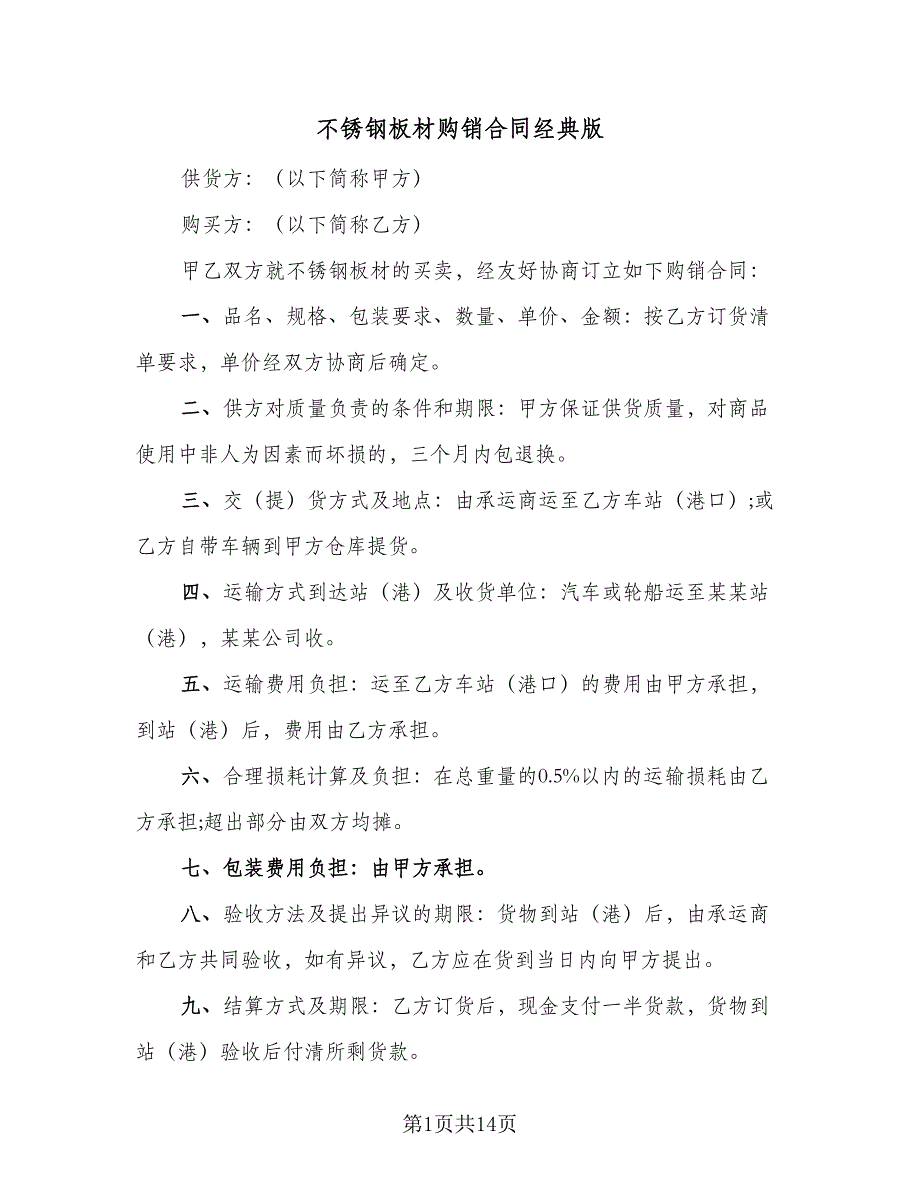 不锈钢板材购销合同经典版
供货方：（以下简称甲方）
购买方：（以下简称乙方）
甲乙双方就不锈钢板材的买卖，经友好协商订立如下购销合同：
一、品名、规格、包装要求、数量、单价、金额：按乙方订货清
单要求，单价经双方协商后确定。
二、供方对质量负责的条件和期限：甲方保证供货质量，对商品
使用中非人为因素而坏损的，三个月内包退换。
三、交（提）货方式及地点：由承运商运至乙方车站（港口）;或
乙方自带车辆到甲方仓库提货。
四、运输方式到达站（港）及收货单位：汽车或轮船运至某某站
（港），某某公司收。
五、运输费用负担：运至乙方车站（港口）的费用由甲方承担，
到站（港）后，费用由乙方承担。
六、合理损耗计算及负担：在总重量的0.5%以内的运输损耗由乙
方承担;超出部分由双方均摊。
七、包装费用负担：由甲方承担。
八、验收方法及提出异议的期限：货物到站（港）后，由承运商
和乙方共同验收，如有异议，乙方应在货到当日内向甲方提出。
九、结算方式及期限：乙方订货后，现金支付一半货款，货物到
站（港）验收后付清所剩货款。
第1页共14页